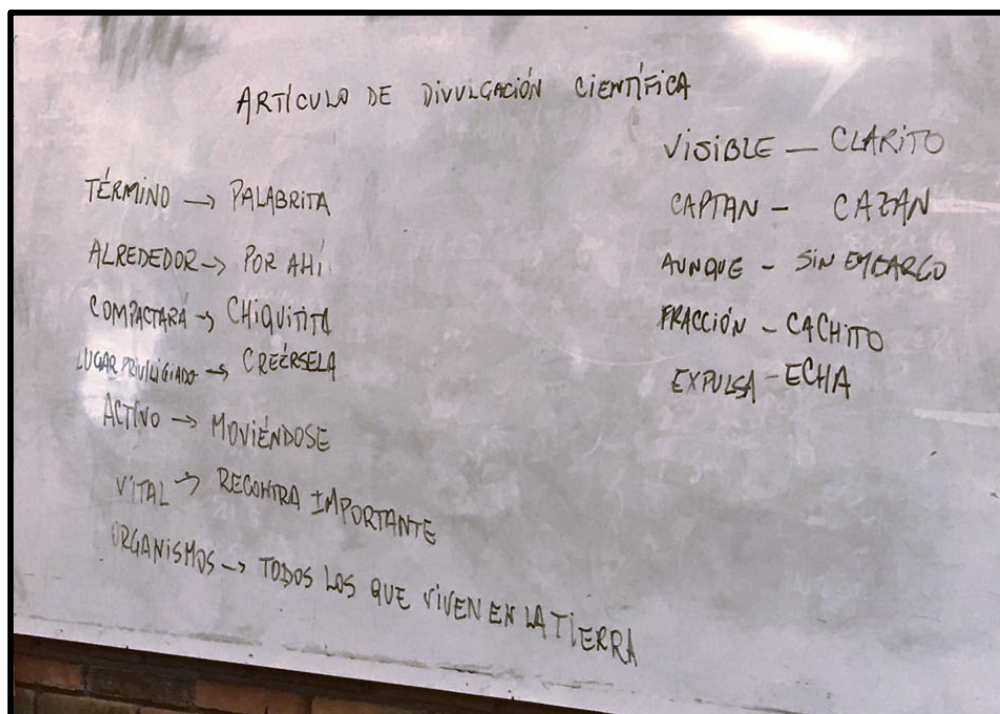 ARTÍCULO DE DIVULGACIÓN CIENTÍFICA
TÉRMINO → PALABRITA
ALREDEDOR → POR AHÍ
COMPACTARÁ → CHIQUITITA
LUGAR PRIVILIGIADO → CREÉRSELA
ACTIVO → MOVIÉNDOSE
VITAL → RECONTRA IMPORTANTE
ORGANISMOS → TODOS LOS QUE VIVEN EN LA TIERRA
VISIBLE — CLARITO
CAPTAN - CAZAN
AUNQUE - SIN EMBARGO
FRACCIÓN - CACHITO
EXPULSA - ECHA